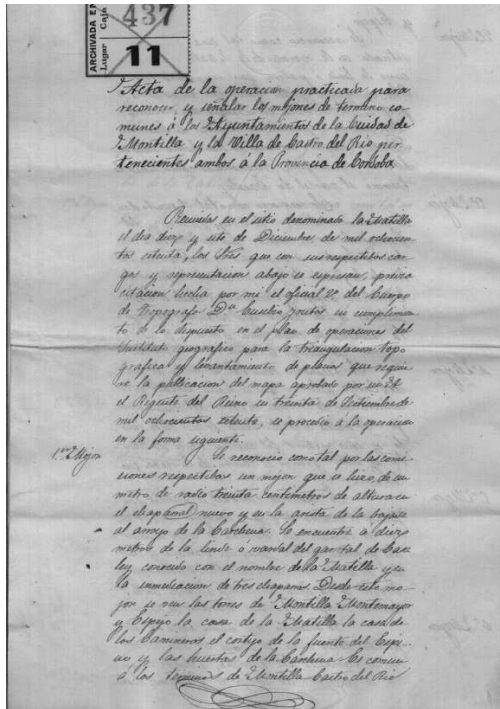 ARCHIVADA EN
Lugar Caja
437
11
Acta de la operacion practicada para
reconocer y señalar los mojones de termino co-
munes á los Ayuntamientos de la Ciudad de
Montilla y la Villa de Castro del Rio per
tenecientes ambos á la Provincia de Cordoba
Reunidos en el sitio denominado la Matilla
el dia diez y siete de Diciembre de mil ochocien
tos setenta, los Sres que con sus respectivos car-
gos y representacion abajo se espresan, previa
citacion hecha por mi el oficial 2º del Cuerpo
de Topografos Dn Eusebio en cumplimien
to de lo dispuesto en el plan de operaciones del
Instituto geografico para la triangulacion topo
grafica y levantamiento de planos que requie
re la publicacion del mapa aprobado por S.A.
el Regente del Reino en treinta de Setiembre de
mil ochocientos setenta, se procedio á la operacion
en la forma siguiente.
1er Mojon
Se reconocio como tal por las comi
siones respectivas un mojon que se hizo, de un
metro de radio treinta centimetros de altura en
el chaparral nuevo y en la arista de la bajada
al arroyo de la Cardena. Se encuentra á diez
metros de la linde
conocido con el nombre de la Matilla y en
la inmediacion de tres chaparros. Desde este mo-
jon se ven las torres de Montilla Montemayor
y Espejo la casa de la Matilla la casa de
los Camineros el cortijo de la fuente del Espi-
no y las huertas de la Cardena. Es comun
á los terminos de Montilla Castro del Rio